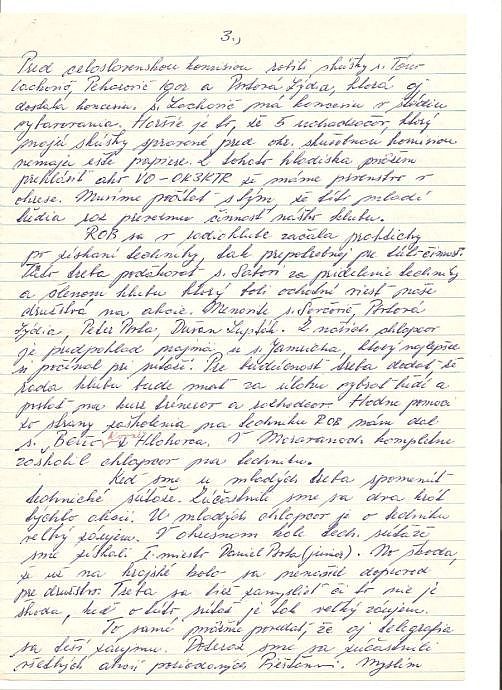 3.,
Pred celoslovenskou komisiou robili skúšky s. Tóno
Lachovič, Peharovič Igor a Portová Lýdia, ktorá aj
dostala koncesiu. s. Lachovič má koncesiu v štádiu
vybavovania. Horšie je to, že 5 uchadzačov, ktorý
majú skúšky spravené pred okr. skúšobnou komisiou
nemajú ešte papiere. Z tohoto hladiska môžem
prehlásiť ako VO - OK3KTR že máme prvenstvo v
okrese. Musíme počítať s tým, že títo mladí
ludia raz prevezmu činnosť nášho klubu.
ROB sa v radioklube začala prakticky
po získaní techniky, tak prepotrebnej pre túto činnosť.
Túto treba poďakovať s. Satori za pridelenie techniky
a členom klubu ktorý boli ochotní viesť naše
družstvá na akcie. Menovite s. Portová
Lýdia, Peter Porta, Dušan Lupták. Z našich chlapcov
je predpoklad najmä u s. Jamricha, ktorý najlepšie
si počínal pri súťaži. Pre budúcnosť treba dodať že
rada klubu bude mať za úlohu vybrať ludí a
poslať na kurz trénerov a rozhodcov. Hodne pomoci
zo strany zaškolenia na techniku ROB nám dal
s. z Hlohovca. V Moravanoch kompletne
zaškolil chlapcov na techniku.
Keď sme u mladých treba spomenúť
technické súťaže. Zúčastnili sme sa dva krát
týchto akcií. U mladých chlapcov je o techniku
velký záujem. V okresnom kole tech. súťaží
sme získali 1. miesto Daniel Porta (junior). No škoda,
že už na krajské kolo sa nenašiel doprovod
pre družstvo. Treba sa tiež zamyslieť či to nie je
škoda, keď o túto súťaž je tak velký záujem.
To samé môžme povedať, že aj telegrafia
sa teší záujmu. Doteraz sme sa zúčastnili
všetkých akcií poriadaných Piešťanmi. Myslím